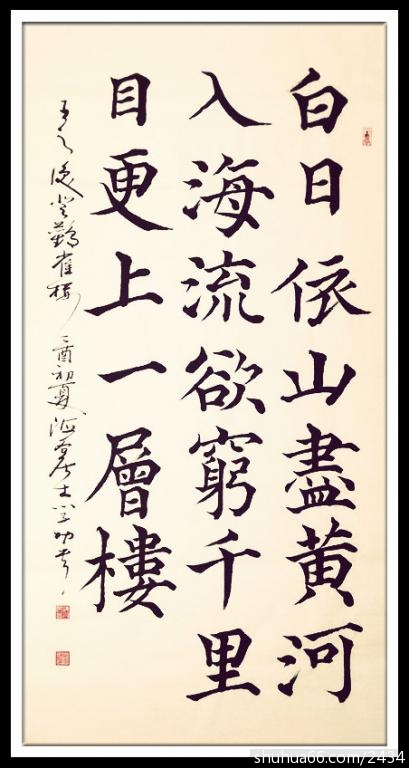 白日依山盡黄河
入海流欲窮千里
目更上一層樓
王之渙登鸛雀樓 乙酉初夏
shuhua66.com/2434